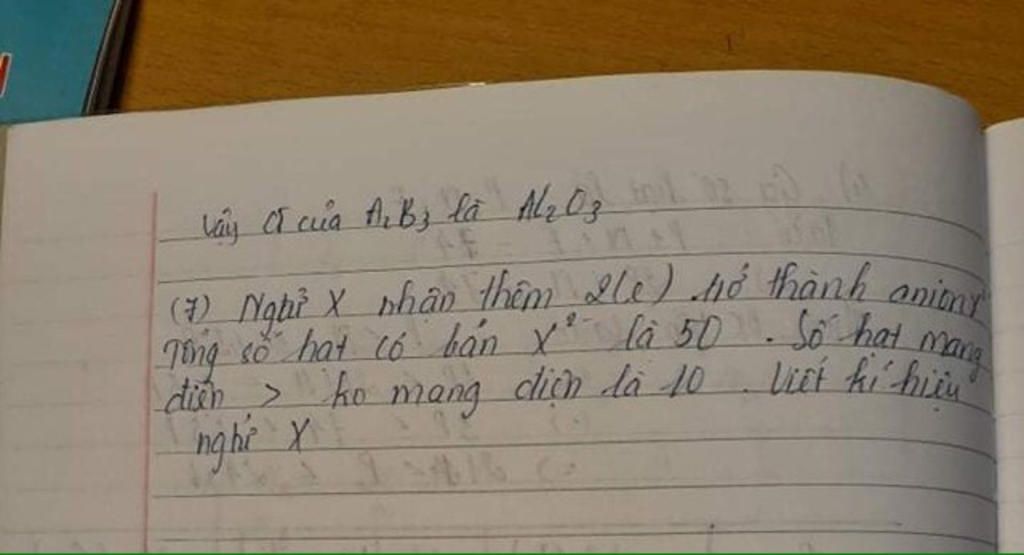 Vậy CT của A₂B₃ là Al₂O₃
(7) Ngtử X nhận thêm 2(e) trở thành anion X²⁻
Tổng số hạt cơ bản X²⁻ là 50 . Số hạt mang
điện > ko mang điện là 10 . Viết kí hiệu
ngtử X